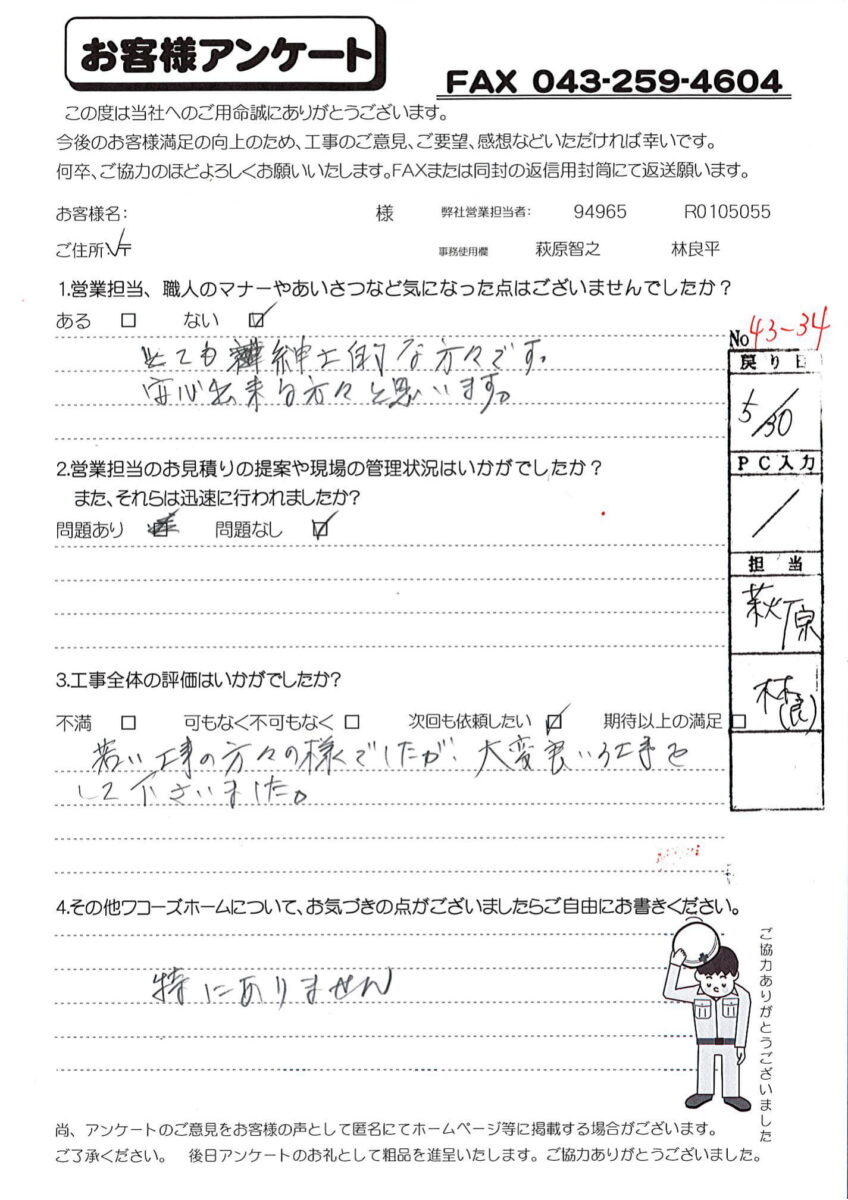 お客様アンケート
FAX 043-259-4604
この度は当社へのご用命誠にありがとうございます。
今後のお客様満足の向上のため、工事のご意見、ご要望、感想などいただければ幸いです。
何卒、ご協力のほどよろしくお願いいたします。FAXまたは同封の返信用封筒にて返送願います。
お客様名: 様 弊社営業担当者: 94965 R0105055
ご住所:〒 事務使用欄 萩原智之 林良平
1.営業担当、職人のマナーやあいさつなど気になった点はございませんでしたか?
ある □ ない ☑
とても紳士的な方々です。
安心出来る方々と思います。
No 43-34
戻り日
5/30
PC入力
/
担当
萩原
林(良)
2.営業担当のお見積りの提案や現場の管理状況はいかがでしたか?
また、それらは迅速に行われましたか?
問題あり □ 問題なし ☑
3.工事全体の評価はいかがでしたか?
不満 □ 可もなく不可もなく □ 次回も依頼したい ☑ 期待以上の満足 □
若い工事の方々の様でしたが、大変良い工事を
して下さいました。
4.その他ワコーズホームについて、お気づきの点がございましたらご自由にお書きください。
特にありません
ご協力ありがとうございました
尚、アンケートのご意見をお客様の声として匿名にてホームページ等に掲載する場合がございます。
ご了承ください。 後日アンケートのお礼として粗品を進呈いたします。ご協力ありがとうございました。